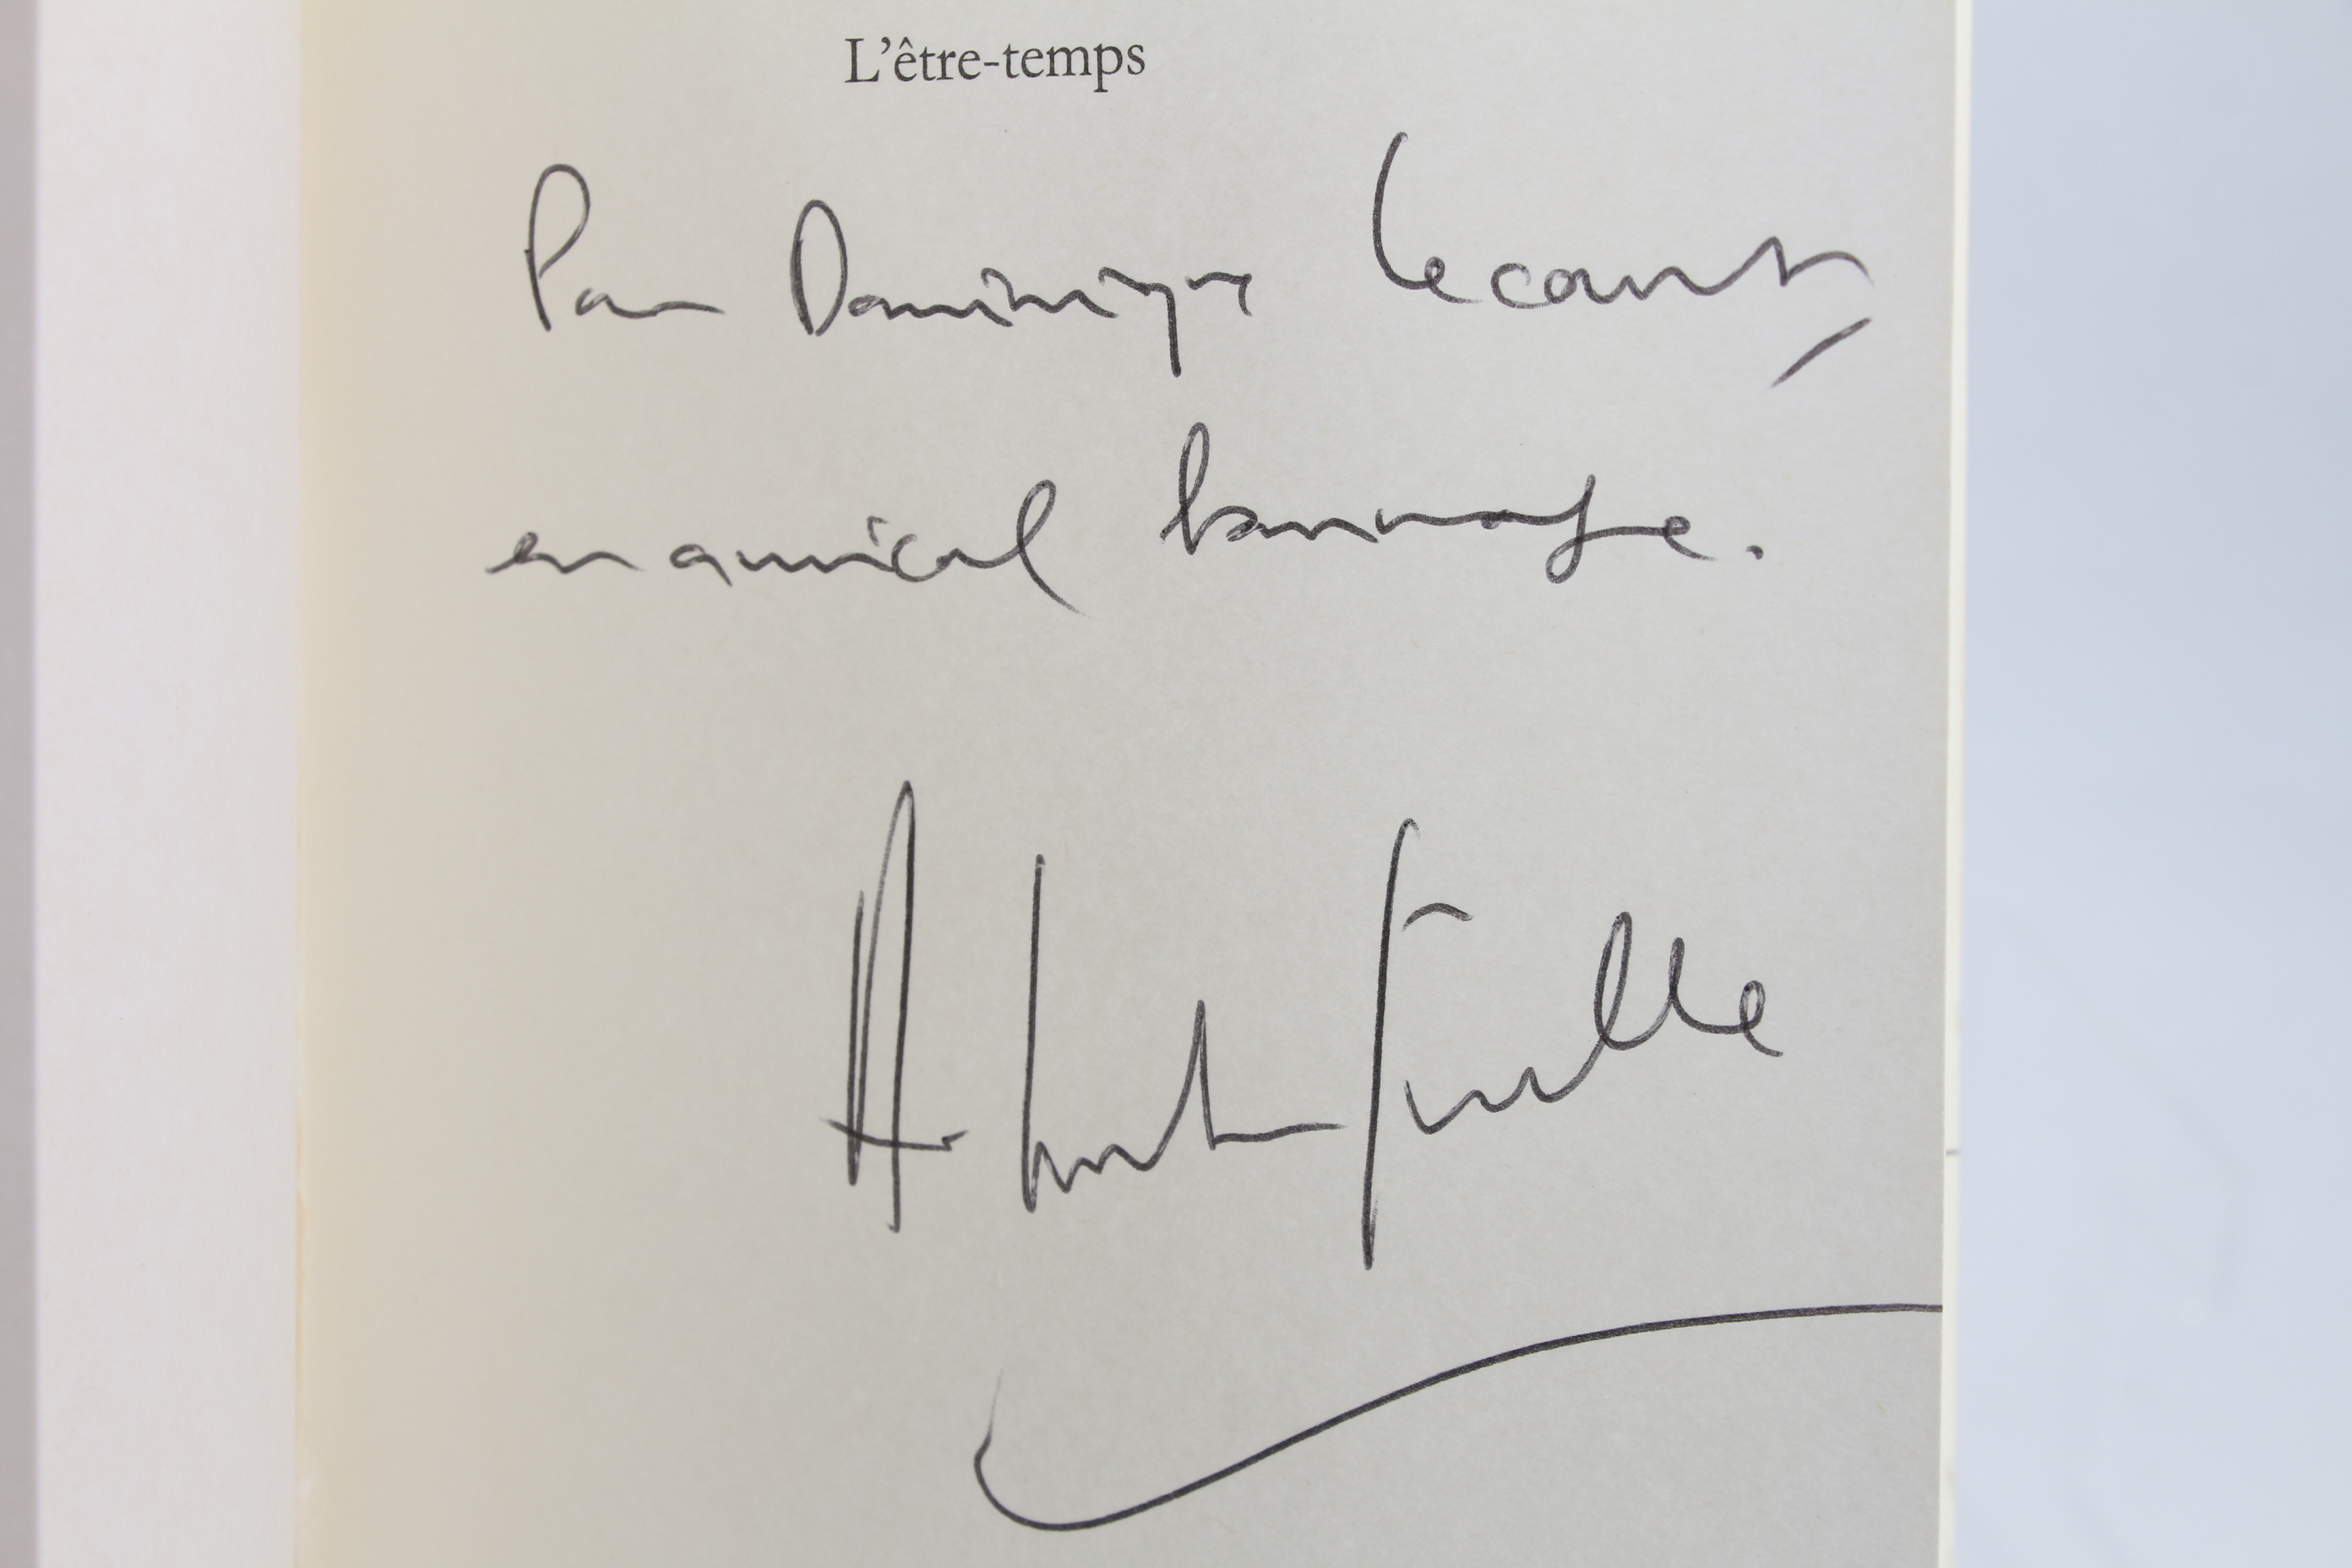 L'être-temps
Pour Dominique Lecourt,
en amical hommage.
A. Comte-Sponville